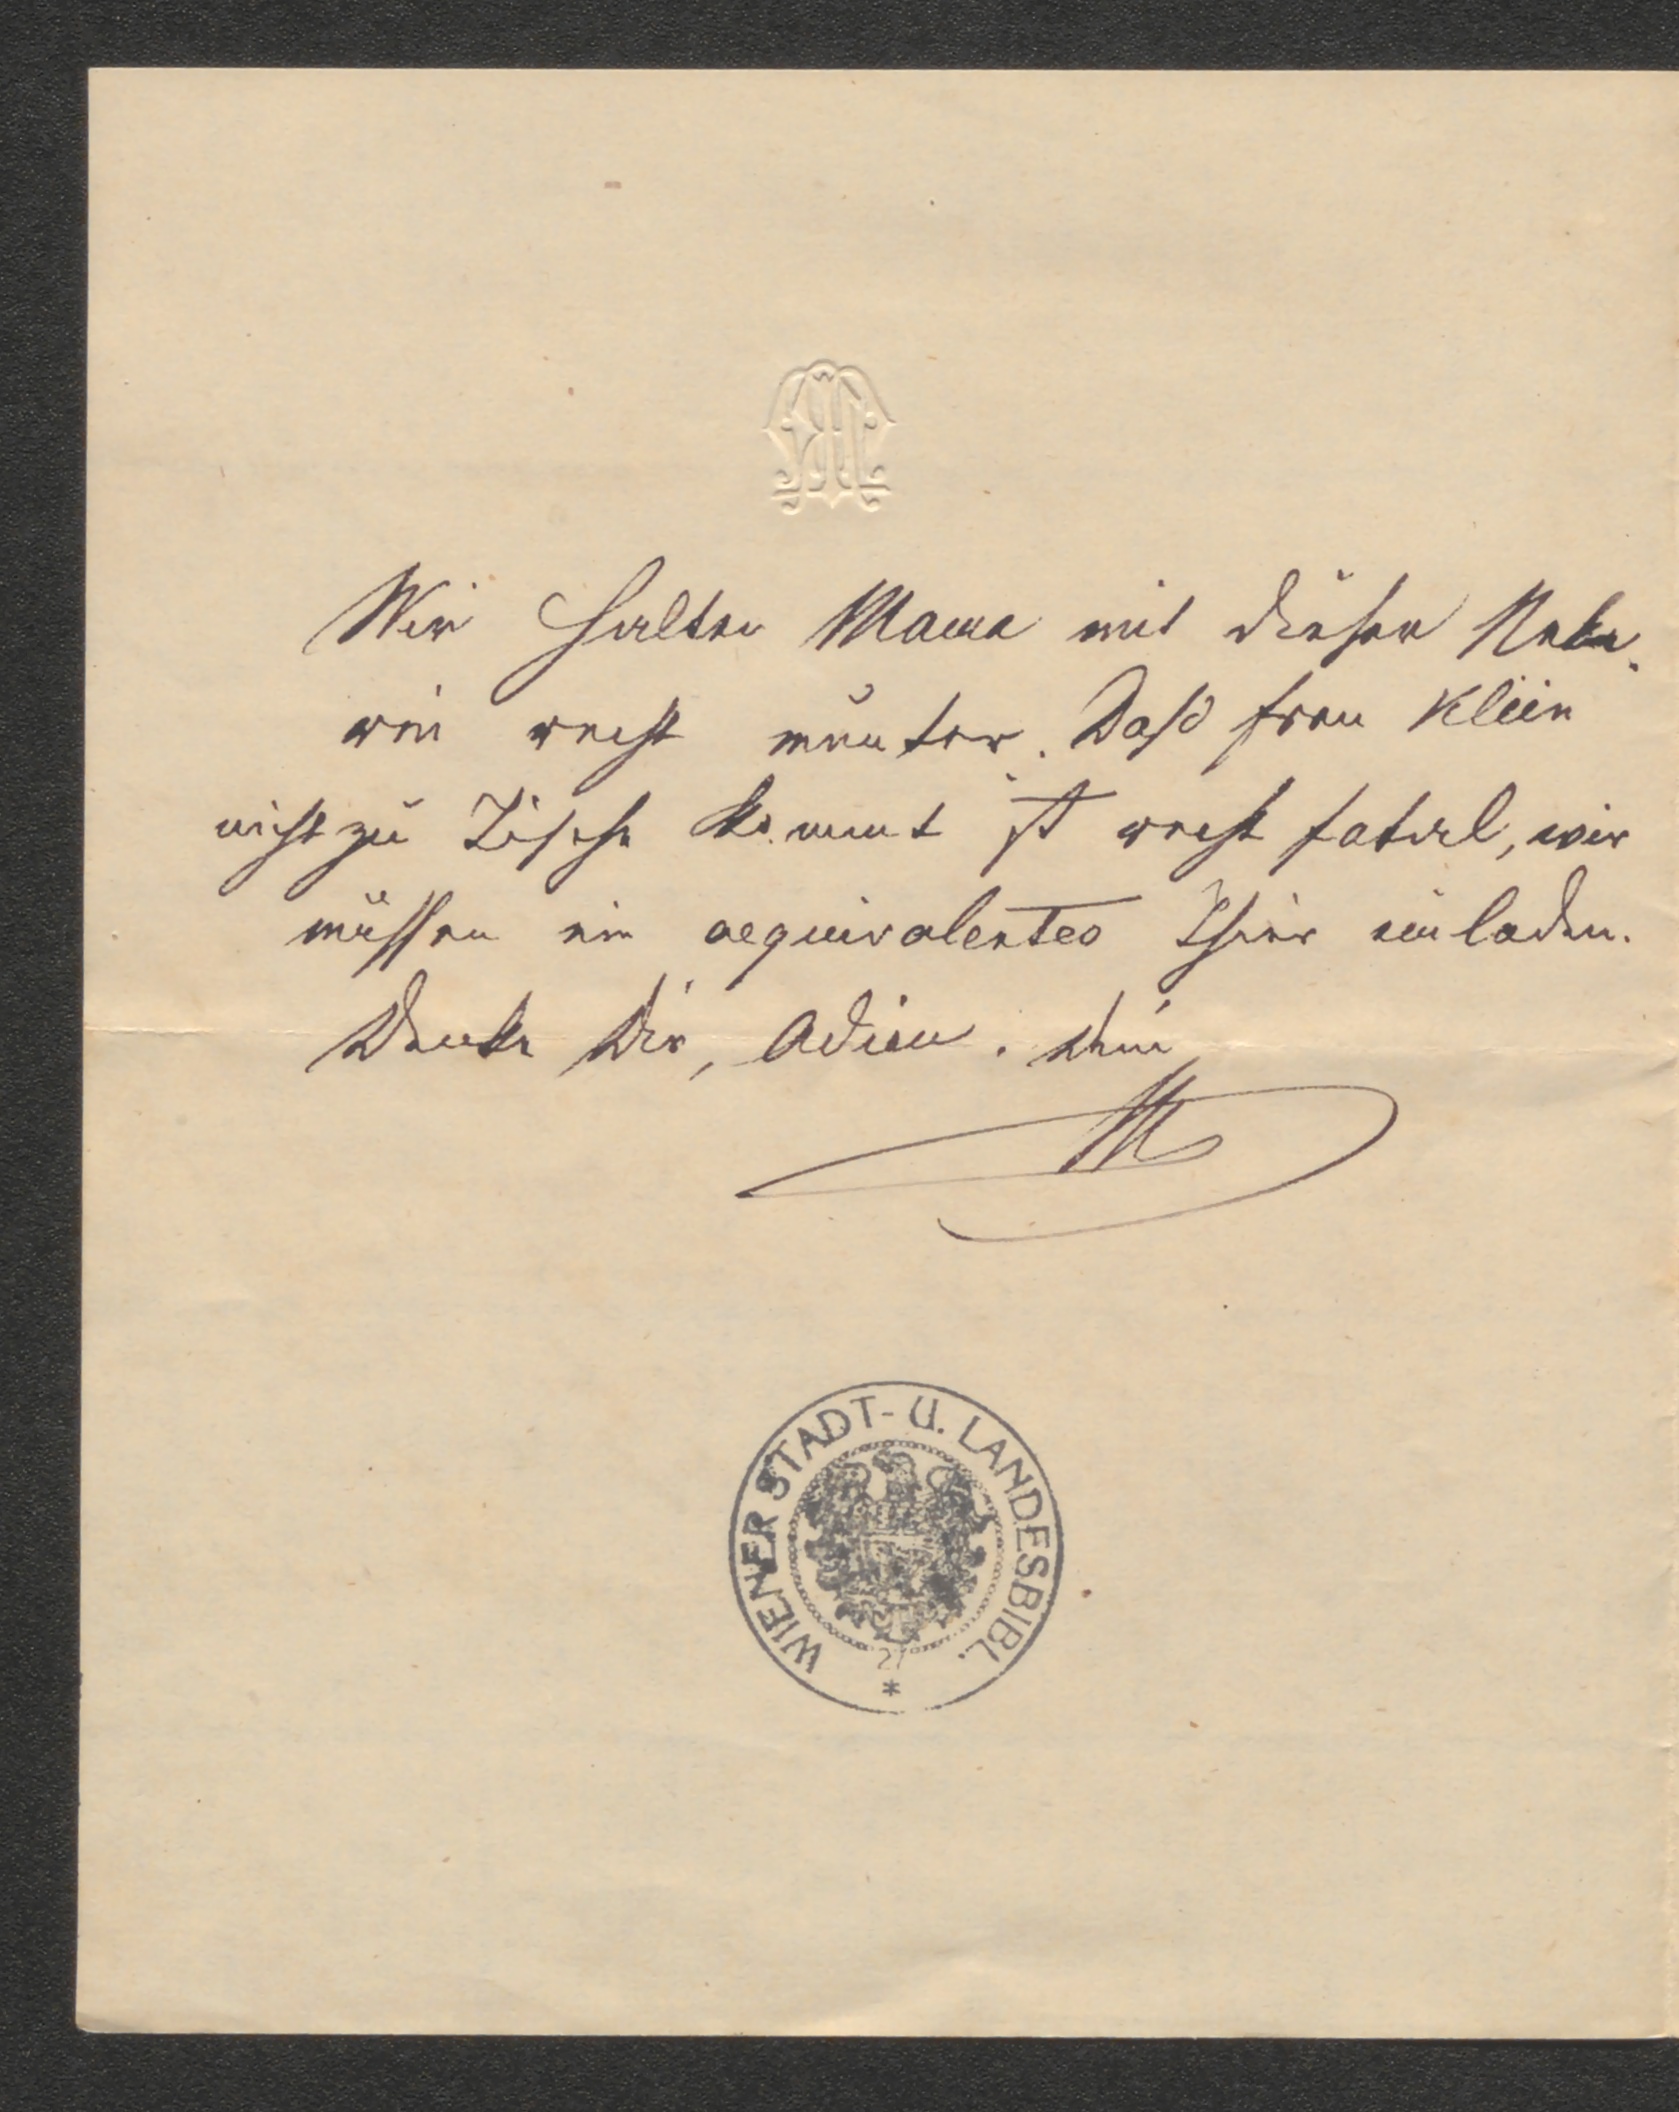 Wir halten Mama mit dieser Neke¬
rei recht munter. Daß Frau Klein
nicht zu Tische kommt ist recht fatal, wir
müssen ein aequivalentes Thier einladen.
Danke Dir, Adieu. Dein
M
WIENER STADT- U. LANDESBIBL.
27
*